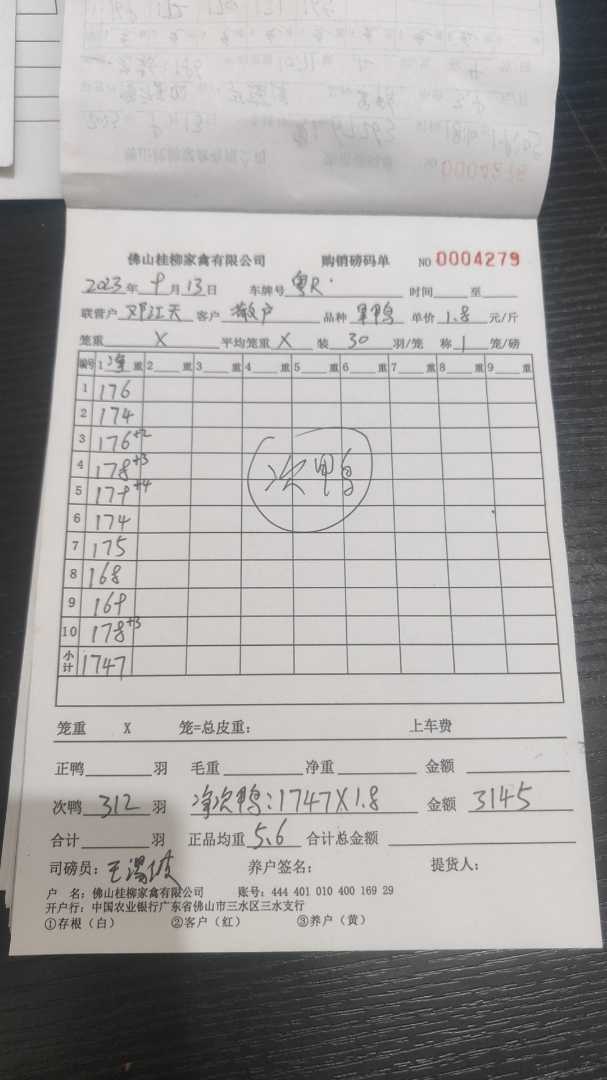 佛山桂柳家禽有限公司 购销磅码单 NO 0004279
2023年9月13日 车牌号 粤R. 时间 至
联营户 邓江天 客户 散户 品种 单鸭 单价 1.8 元/斤
笼重 X 平均笼重 X 装 30 羽/笼 称 1 笼/磅
编号 1 净 重 2 重 3 重 4 重 5 重 6 重 7 重 8 重 9 重
1 176
2 174
3 176+2
4 178+3
5 179+4
6 174
7 175
8 168
9 169
10 178+3
小计 1747
次鸭
笼重 X 笼=总皮重: 上车费
正鸭 羽 毛重 净重 金额
次鸭 312 羽 净次鸭:1747X1.8 金额 3145
合计 羽 正品均重 5.6 合计总金额
司磅员: 养户签名: 提货人:
户 名: 佛山桂柳家禽有限公司 账号: 444 401 010 400 169 29
开户行: 中国农业银行广东省佛山市三水区三水支行
①存根（白） ②客户（红） ③养户（黄）